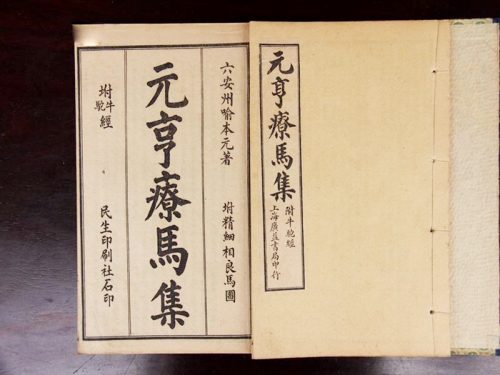 元亨療馬集
附牛駝經
上海廣益書局印行
六安州喻本元著
坿精細相良馬圖
元亨療馬集
坿牛駝經
民生印刷社石印